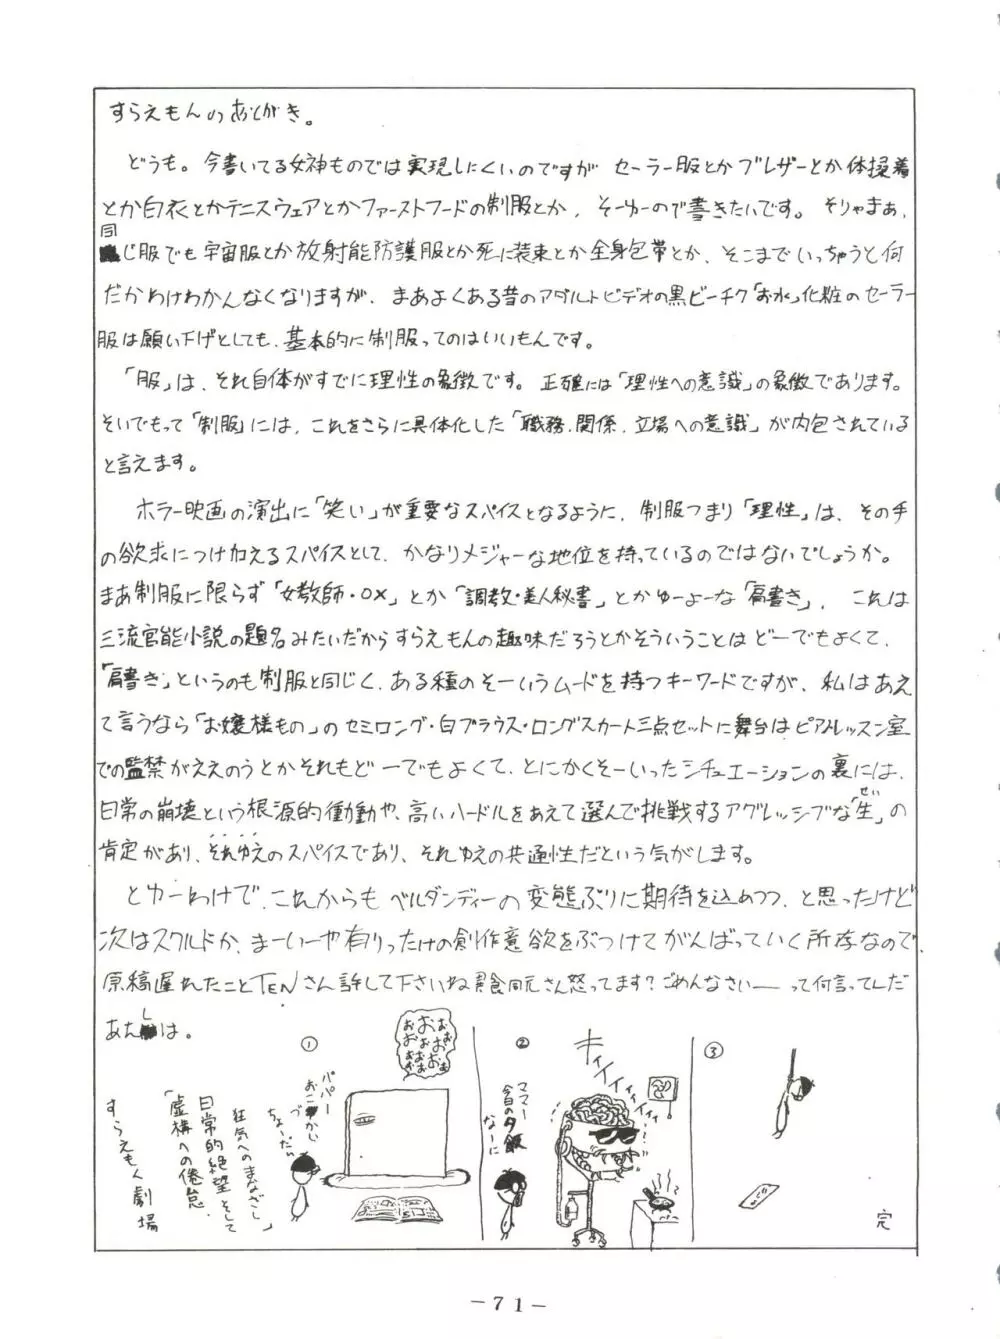 すらえもんのあとがき。
どうも。今書いてる女神ものでは実現しにくいのですが セーラー服とかブレザーとか体操着
とか白衣とかテニスウェアとかファーストフードの制服とか、そーゆーので書きたいです。そりゃまぁ、
同じ服でも宇宙服とか放射能防護服とか死に装束とか全身包帯とか、そこまでいっちゃうと何
だかわけわかんなくなりますが、まあよくある昔のアダルトビデオの黒ビーチク「お水」化粧のセーラー
服は願い下げとしても、基本的に制服ってのはいいもんです。
「服」は、それ自体がすでに理性の象徴です。正確には「理性への意識」の象徴であります。
そいでもって「制服」には、これをさらに具体化した「職務、関係、立場への意識」が内包されている
と言えます。
ホラー映画の演出に「笑い」が重要なスパイスとなるように、制服つまり「理性」は、その手
の欲求につけ加えるスパイスとして、かなりメジャーな地位を持っているのではないでしょうか。
まあ制服に限らず「女教師・○×」とか「調教・美人秘書」とかゆーよーな「肩書き」、これは
三流官能小説の題名みたいだからすらえもんの趣味だろうとかそういうことはどーでもよくて、
「肩書き」というのも制服と同じく、ある種のそーいうムードを持つキーワードですが、私はあえ
て言うなら「お嬢様もの」のセミロング・白ブラウス・ロングスカート三点セットに舞台はピアノレッスン室
での監禁がええのうとかそれもどーでもよくて、とにかくそーいったシチュエーションの裏には、
日常の崩壊という根源的衝動や、高いハードルをあえて選んで挑戦するアグレッシブな「生」の
せい
肯定があり、それゆえのスパイスであり、それゆえの共通性だという気がします。
とゆーわけで、これからもベルダンディーの変態ぶりに期待を込めつつ、と思ったけど
次はスクルドか、まーいーや有りったけの創作意欲をぶつけてがんばっていく所存なので、
原稿遅れたことTENさん許して下さいね 同元さん怒ってます?ごめんなさい—って何言ってんだ
あたしは。
①
パパー
おこづかい
ちょーだい
おおおおおおおおおおおおおおお
②
ママー
今日の夕飯
なーに
キィイイイイイイイイ
③
完
狂気へのまなざし」
日常的絶望そして
「虚構への倦怠、
すらえもん劇場
－71－